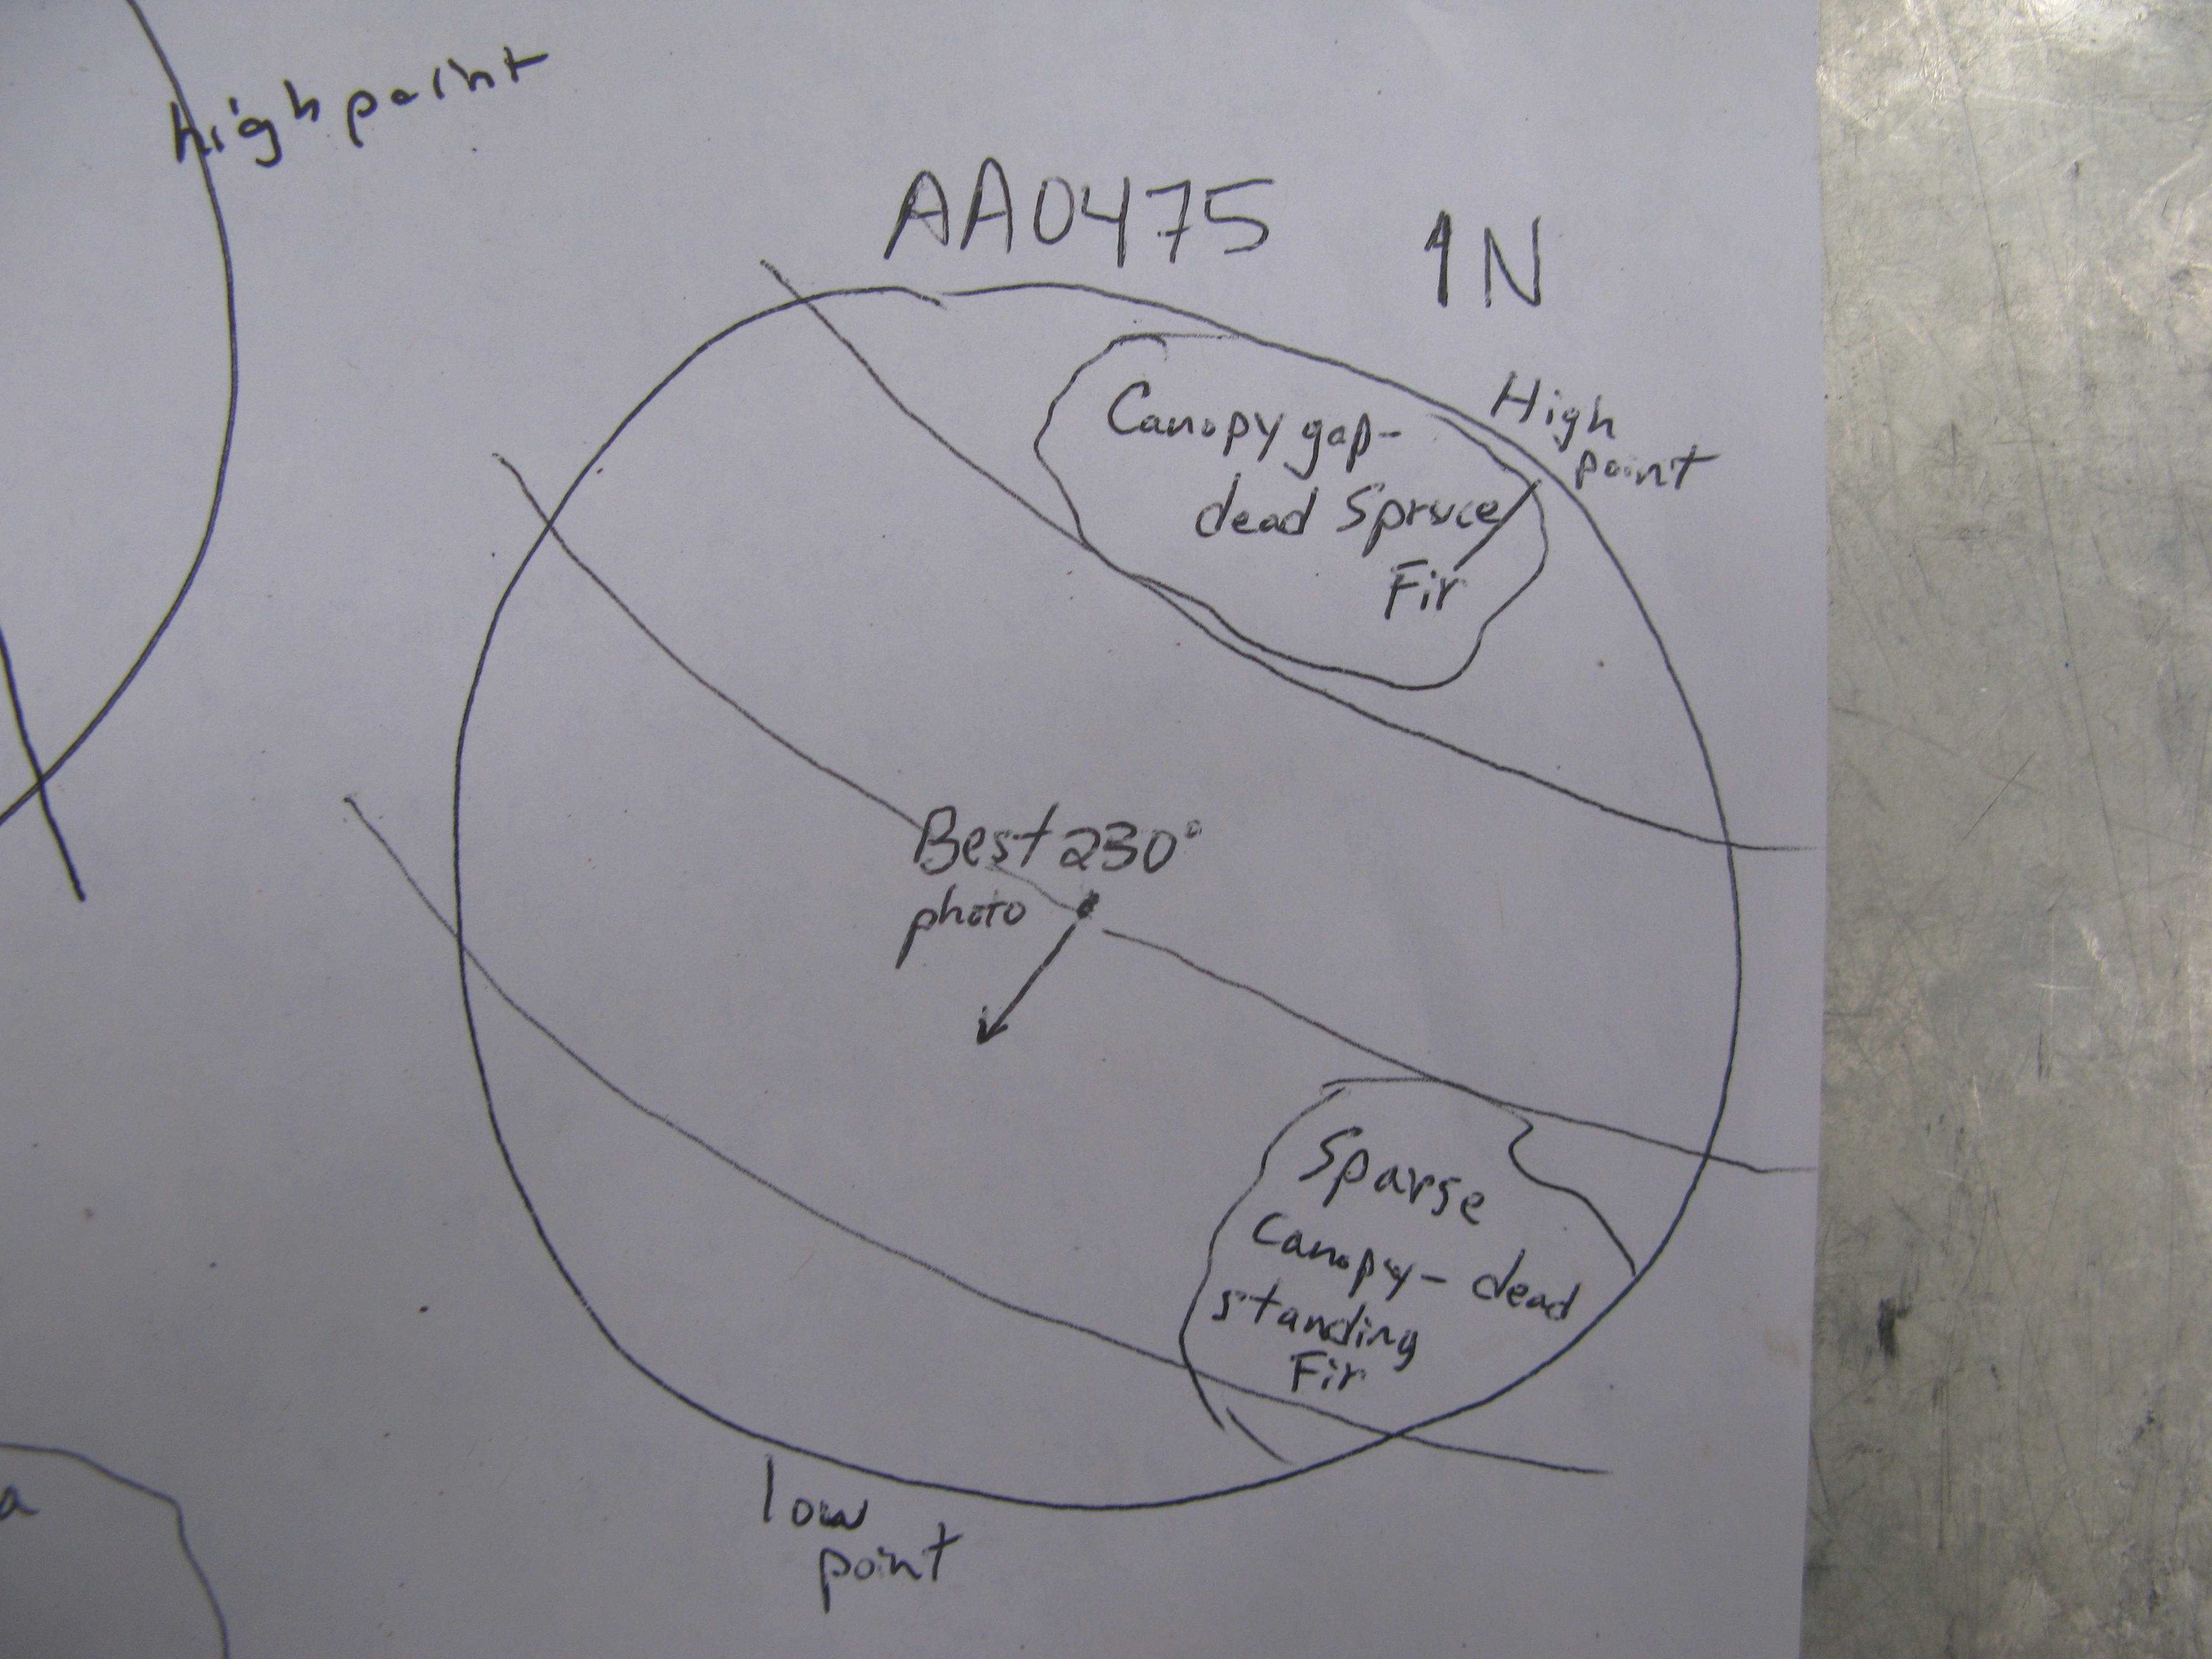 high point
AA0475
1N
High
point
Canopy gap-
dead Spruce/
Fir
Best 230°
photo
Sparse
Canopy- dead
standing
Fir
low
point
a